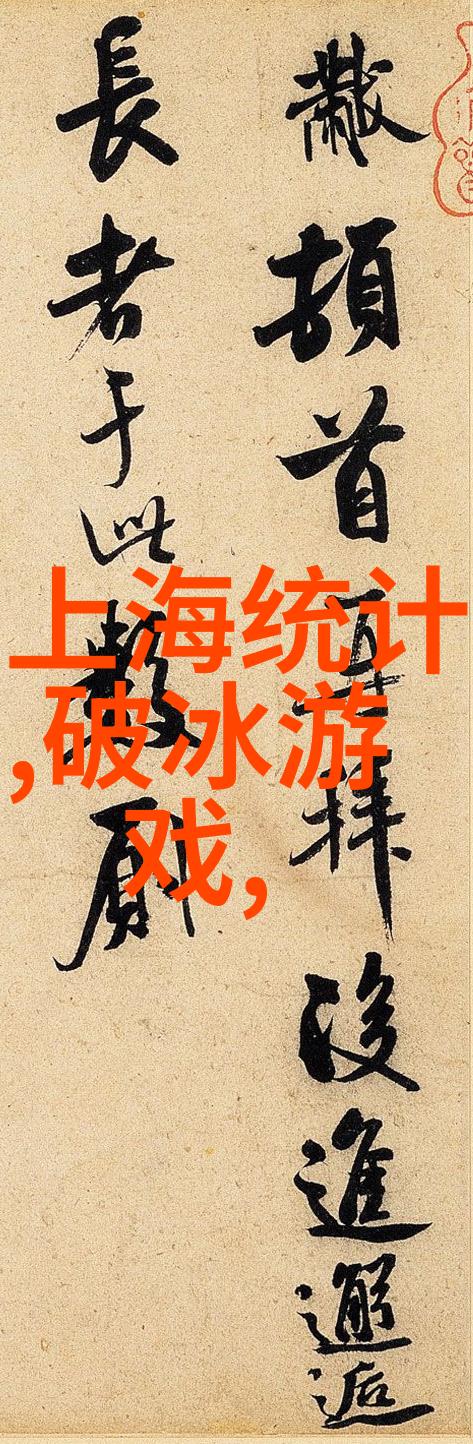 黻頓首再拜後進邂逅
長者于此數厠
上海统计
,破冰游
戏,